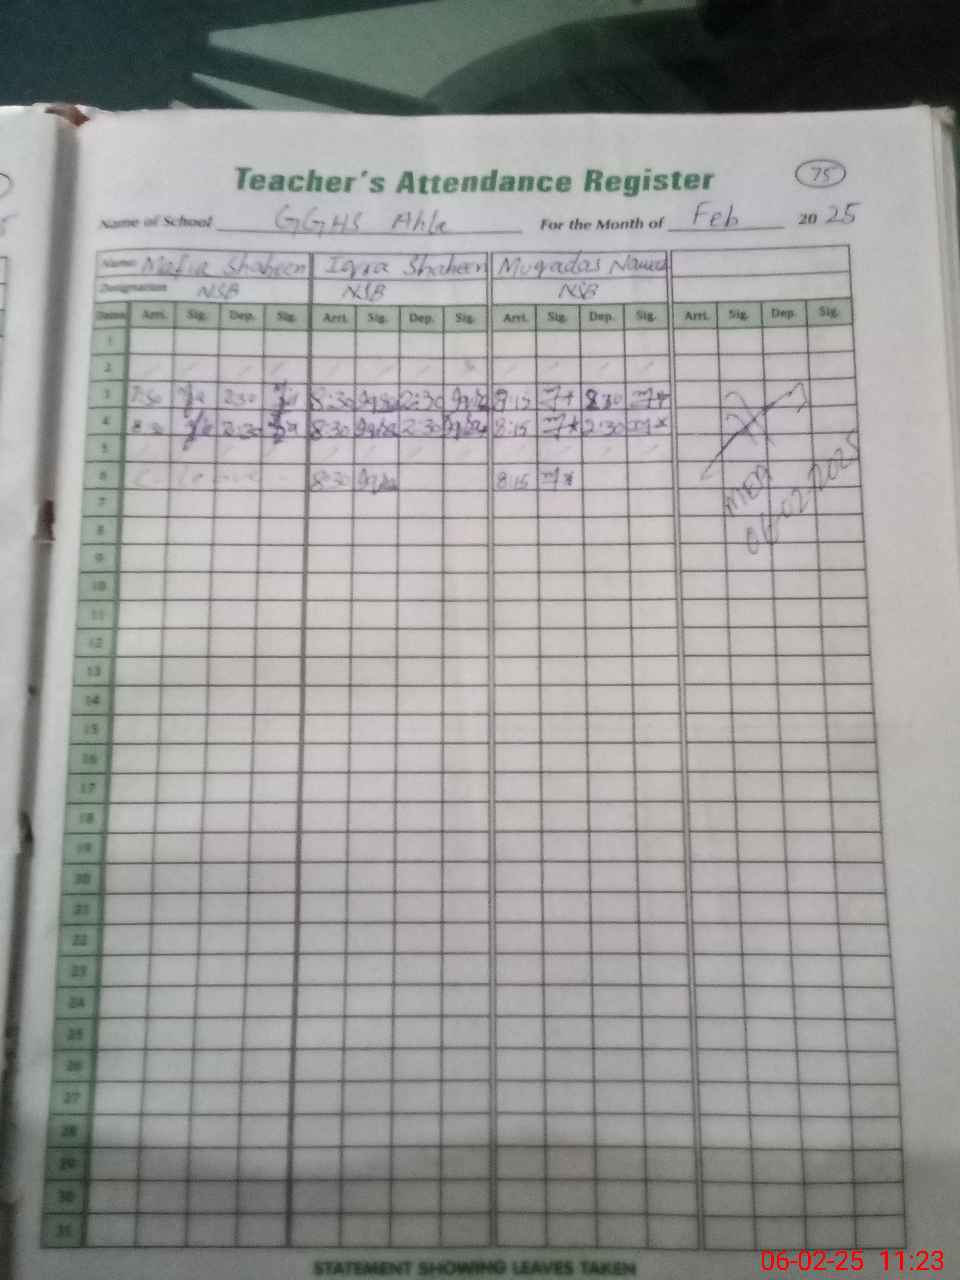 Teacher's Attendance Register 75
Name of School GGHS Ahla For the Month of Feb 2025
Name Mafia Shaheen Iqra Shaheen Muqadas Nawaz
Designation NSB NSB NSB
Dates Arri. Sig. Dep. Sig. Arri. Sig. Dep. Sig. Arri. Sig. Dep. Sig. Arri. Sig. Dep. Sig.
1
2
3 7:30 2:30 8:30 Iqra 2:30 Iqra 8:15 8:30
4 8:30 2:30 8:30 Iqra 2:30 Iqra 8:15 2:30
5
6 C. Leave 8:30 Iqra 8:15
MEA
06-02-2025
7
8
9
10
11
12
13
14
15
16
17
18
19
20
21
22
23
24
25
26
27
28
29
30
31
STATEMENT SHOWING LEAVES TAKEN
06-02-25 11:23